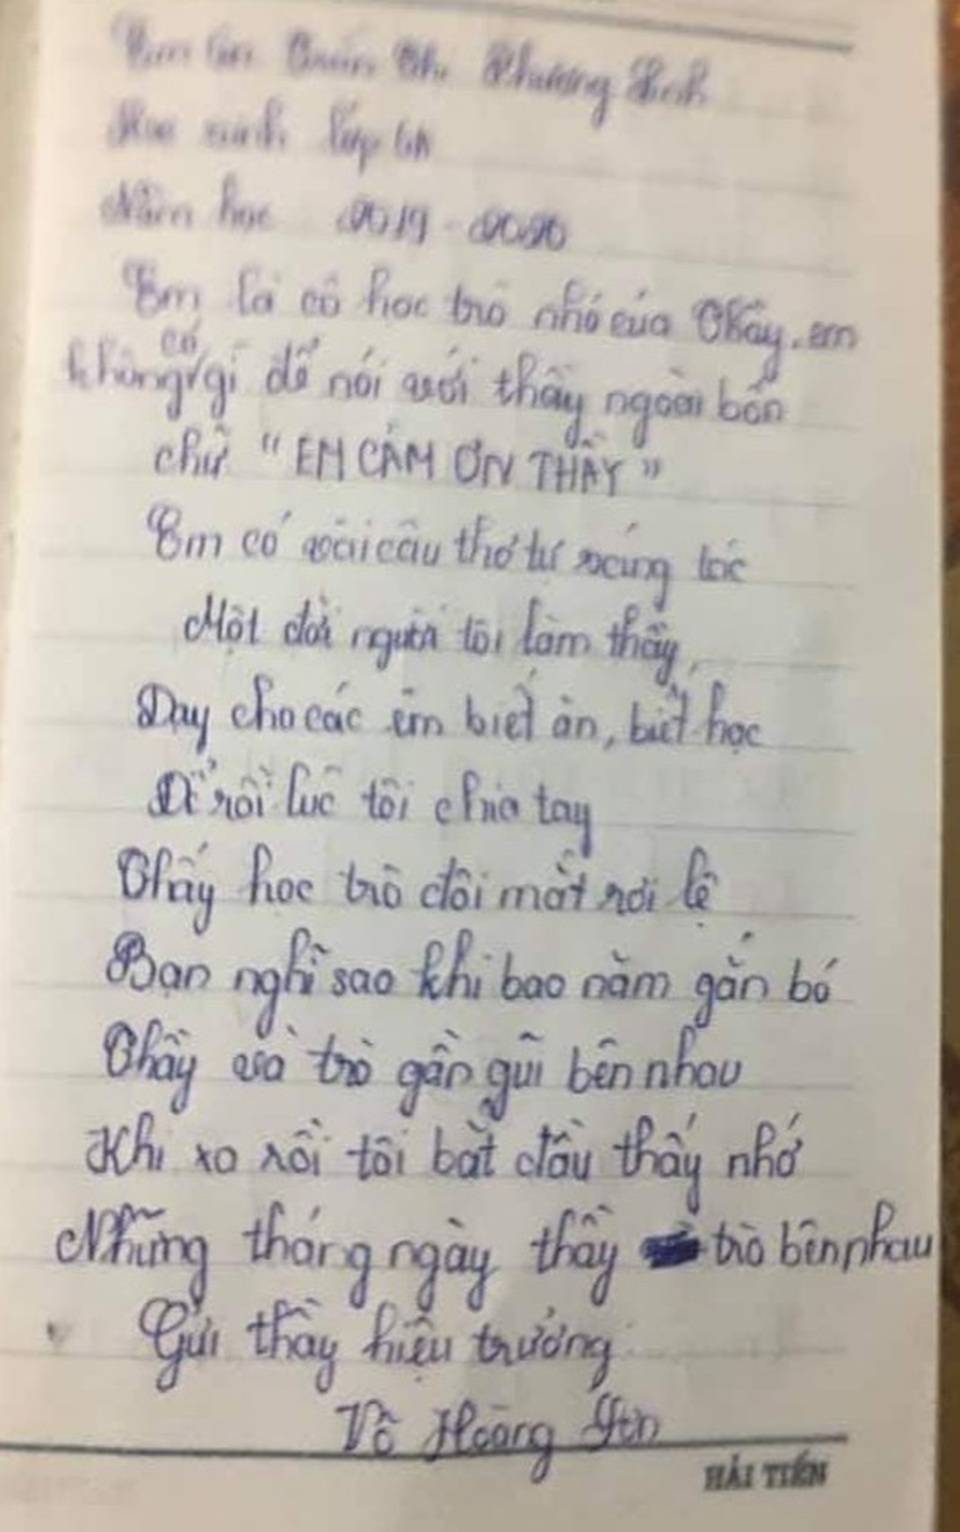 Em tên Trần Thị Phương Linh
Học sinh lớp 6A
Năm học 2019-2020
Em là cô học trò nhỏ của Thầy, em
không có gì để nói với thầy ngoài bốn
chữ "EM CẢM ƠN THẦY"
Em có vài câu thơ tự sáng tác
Một đời người tôi làm thầy,
Dạy cho các em biết ăn, biết học
Để rồi lúc tôi chia tay
Thấy học trò đôi mắt rơi lệ
Bạn nghĩ sao khi bao năm gắn bó
Thầy và trò gần gũi bên nhau
Khi xa rồi tôi bắt đầu thấy nhớ
Những tháng ngày thầy trò bên nhau
Gửi thầy hiệu trưởng
Võ Hoàng
HẢI TIẾN